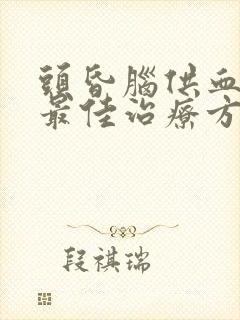 頭昏腦供血
最佳治療方
段祺瑞